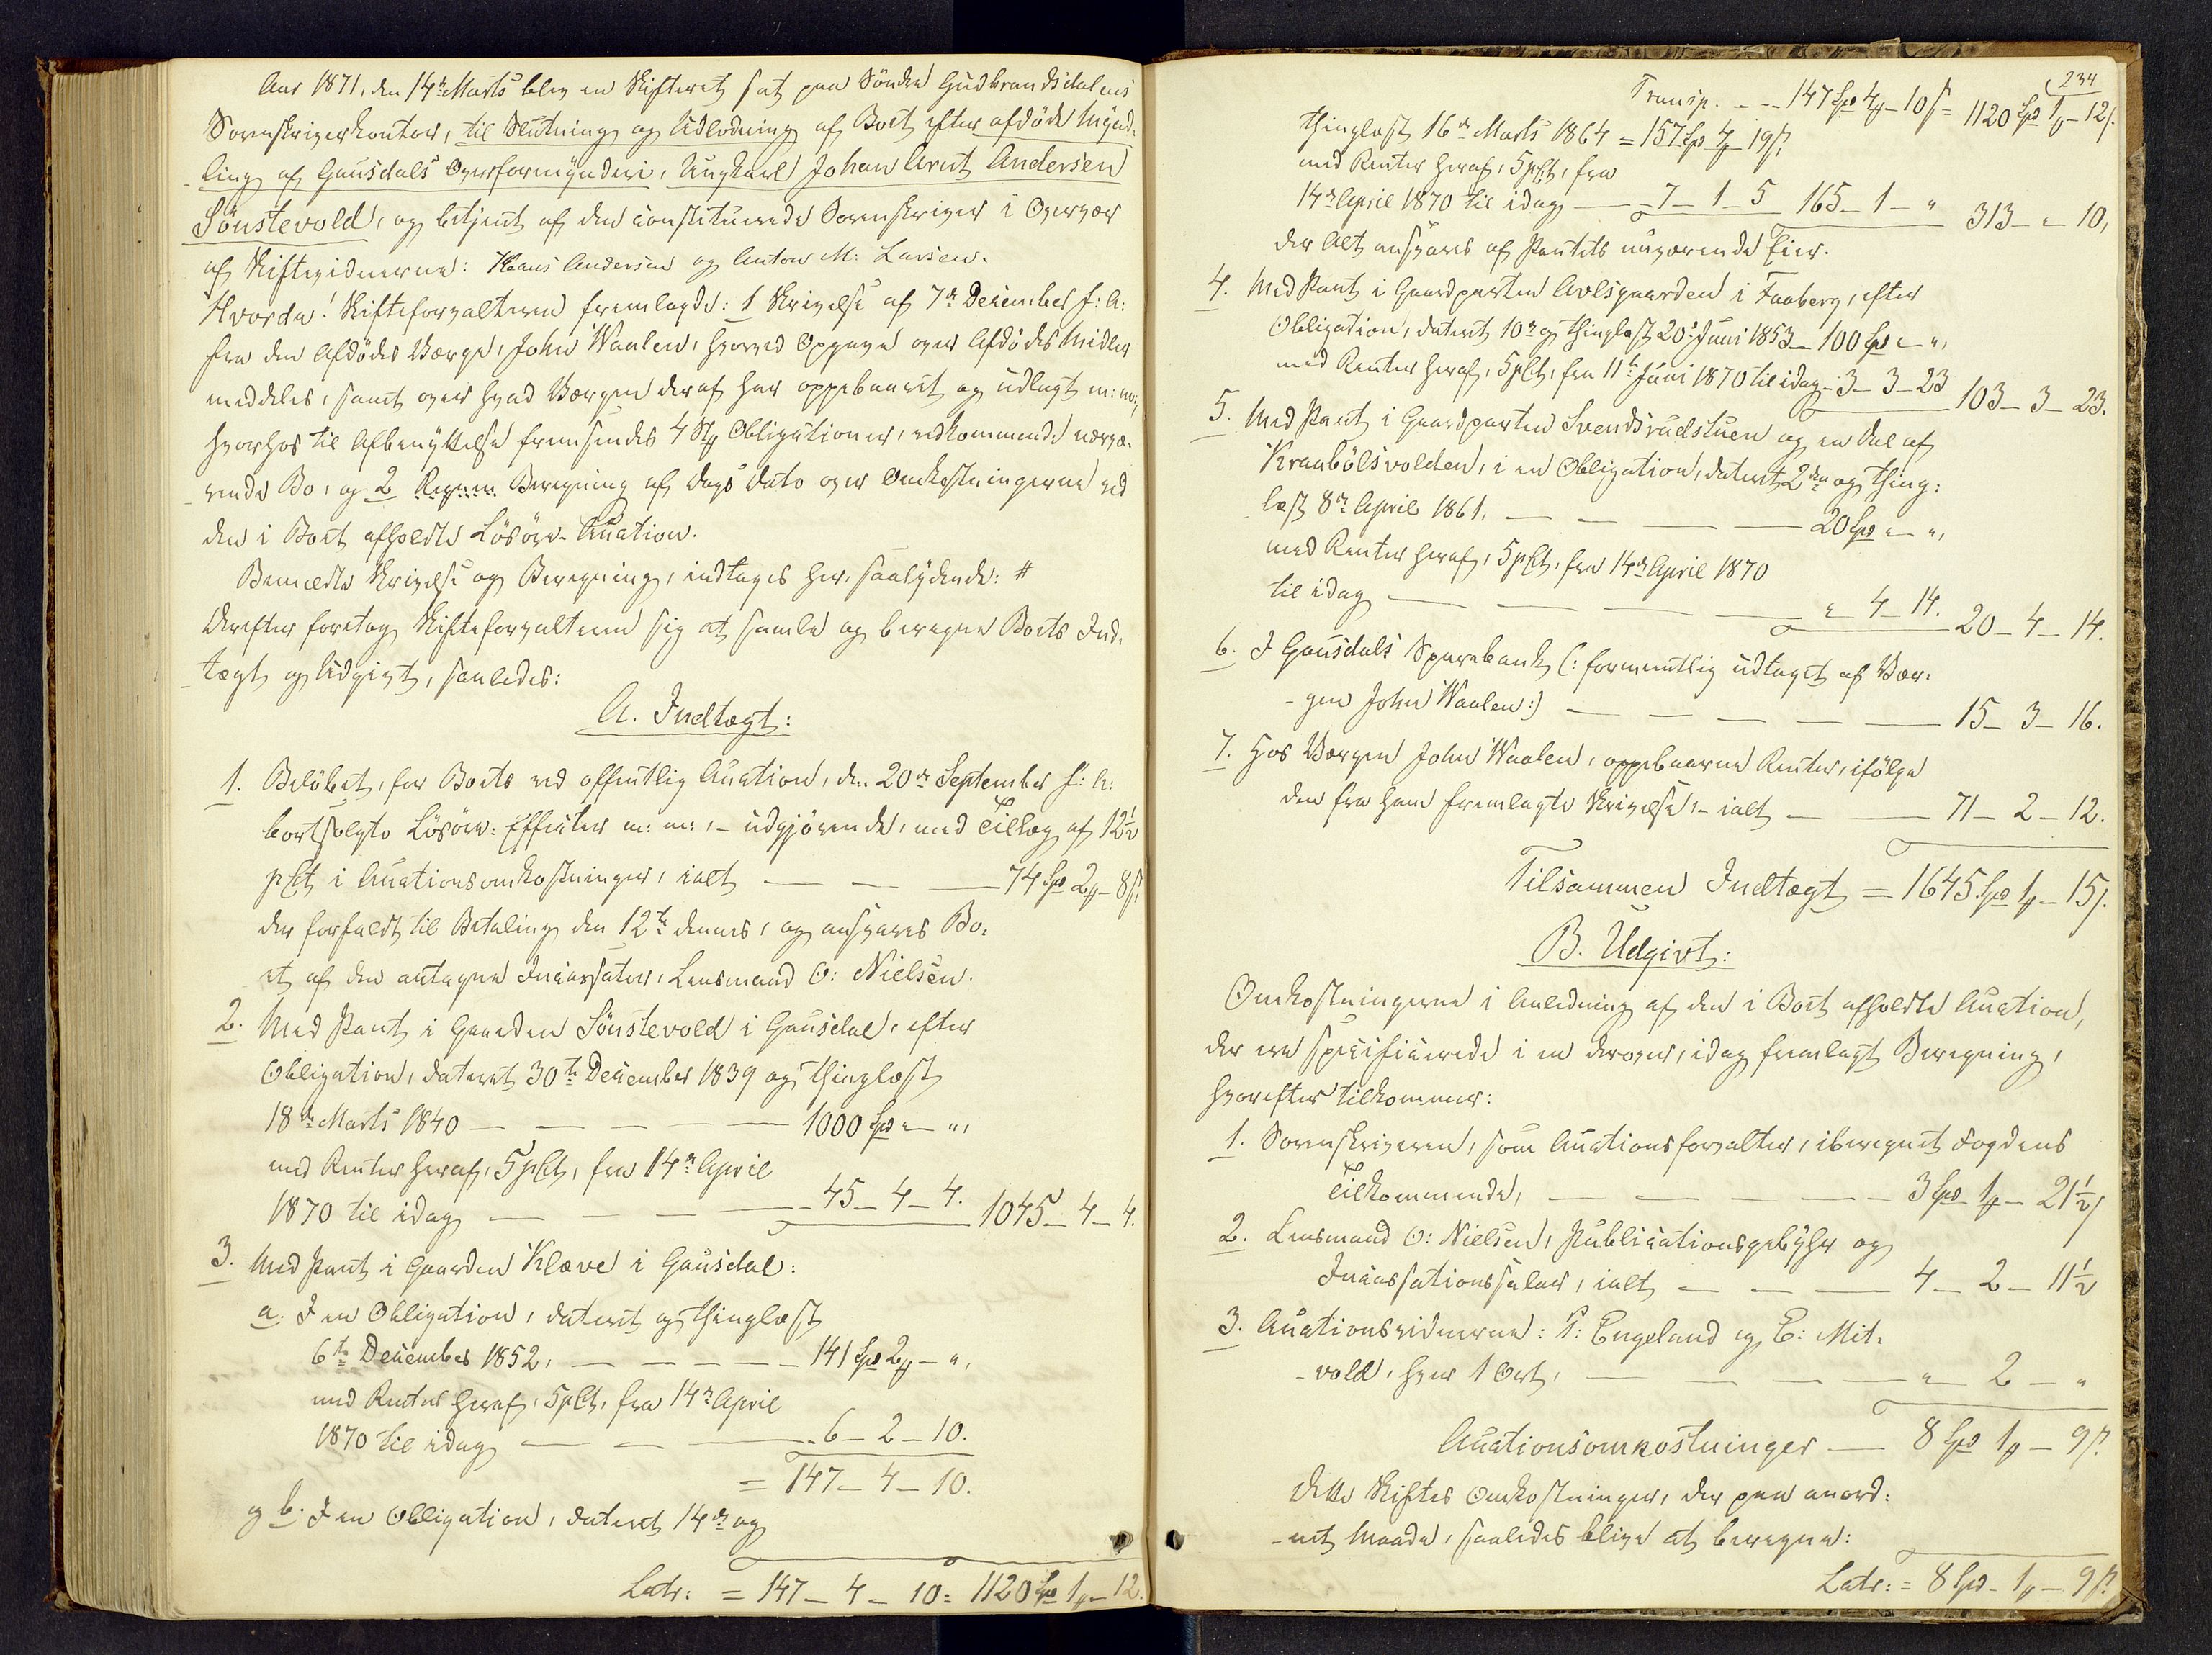 Aar 1871, den 14de Marts blev en Skifteret sat paa Søndre Gudbrandsdalens
Sorenskriverkontor, til Slutning og Udlodning af Boet efter afdøde Mynd-
ling af Gausdals Overformynderi, Ungkarl Johan Arnt Andersen
Sønstevold, og betjent af den constituerede Sorenskriver i Overvær
af Skiftevidnerne: Hans Andersen og Anton M: Larsen.
Hvorda! Skifteforvalteren fremlagde: 1 Skrivelse af 7de December f: A:
fra den Afdødes Værge, John Waalen, hvorved Opgave over Afdødes Midler
meddeles, samt over hvad Værgen deraf har oppebaaret og udlagt m: m:,
hvorhos til Afbenyttelse fremsendes 4 St Obligationer, vedkommende nærvæ-
rende Bo, og 2 Beregning af Dags Dato over Omkostningerne ved
den i Boet afholdte Løsøre-Auction.
Bemeldte Skrivelse og Beregning, indtages her, saalydende: #
Derefter foretog Skifteforvalteren sig at samle og beregne Boets Ind-
tægt og Udgivt, saaledes:
A. Indtægt:
1. Beløbet, for Boets ved offentlig Auction, den 20de September f: A:
bortsolgte Løsøre-Effecter m: m:, - udgjørende, med Tillæg af 12½
pCt i Auctionsomkostninger, ialt — — — 74 Spd 2 # - 8 s,
der forfaldt til Betaling den 12te dennes, og ansvares Bo-
et af den antagne Incassator, Lensmand O: Nielsen.
2. Med Pant i Gaarden Sønstevold i Gausdal, efter
Obligation, dateret 30te December 1839 og thinglæst
18de Marts 1840 — — — — 1000 Spd " - ",
med Renter heraf, 5 pCt, fra 14de April
1870 til idag — — — 45 - 4 - 4. 1045 - 4 - 4.
3. Med Pant i Gaarden Kleve i Gausdal:
a. I en Obligation, dateret og thinglæst
6te December 1852, — — — — 141 Spd 2 # - ",
med Renter heraf, 5 pCt, fra 14de April
1870 til idag — — — 6 - 2 - 10.
= 147 - 4 - 10.
og b. I en Obligation, dateret 14de og
Latr: = 147 - 4 - 10 = 1120 Spd 1 # - 12.
234
Transp. - - - 147 Spd 4 # - 10 s = 1120 Spd 1 # - 12 s.
thinglæst 16de Marts 1864 = 157 Spd 4 # 19 s,
med Renter heraf, 5 pCt, fra
14de April 1870 til idag — 7 - 1 - 5 165 - 1 - " 313 - " - 10,
der Alt ansvares af Pantets nuværende Eier.
4. Med Pant i Gaardparten Avlsgaarden i Faaberg, efter
Obligation, dateret 10de og thinglæst 20de Juni 1853 - 100 Spd " - ",
med Renter heraf, 5 pCt, fra 11te Juni 1870 til idag - 3 - 3 - 23 103 - 3 - 23.
5. Med Pant i Gaardparten Svendsrudstuen og en Del af
Kraabølsvolden, i en Obligation, dateret 2den og thing-
læst 8de April 1861, — — — — 20 Spd " - ",
med Renter heraf, 5 pCt, fra 14de April 1870
til idag — — — — " 4 - 14. 20 - 4 - 14.
6. I Gausdals Sparebank (: formentlig udtaget af Vær-
gen John Waalen :) — — — — — 15 - 3 - 16.
7. Hos Værgen John Waalen, oppebaarne Renter, ifølge
den fra ham fremlagte Skrivelse, - ialt — — 71 - 2 - 12.
Tilsammen Indtægt = 1645 Spd 1 # - 15 s.
B. Udgivt:
Omkostningerne i Anledning af den i Boet afholdte Auction,
der ere specificerede i en derover, idag fremlagt Beregning,
hvorefter tilkommer:
1. Sorenskriveren, som Auctionsforvalter, iberegnet Fogdens
Tilkommende, — — — — — 3 Spd 1 # - 21½ s
2. Lensmand O: Nielsen, Publicationsgebyhr og
Incassationssalær, ialt — — — — 4 - 2 - 11½
3. Auctionsvidnerne: P: Engeland og E: Mit-
vold, hver 1 Ort, — — — — " - 2 - "
Auctionsomkostninger — 8 Spd 1 # - 9 s.
Dette Skiftes Omkostninger, der paa anord-
net Maade, saaledes blive at beregne:
Latr: = 8 Spd - 1 # - 9 s.